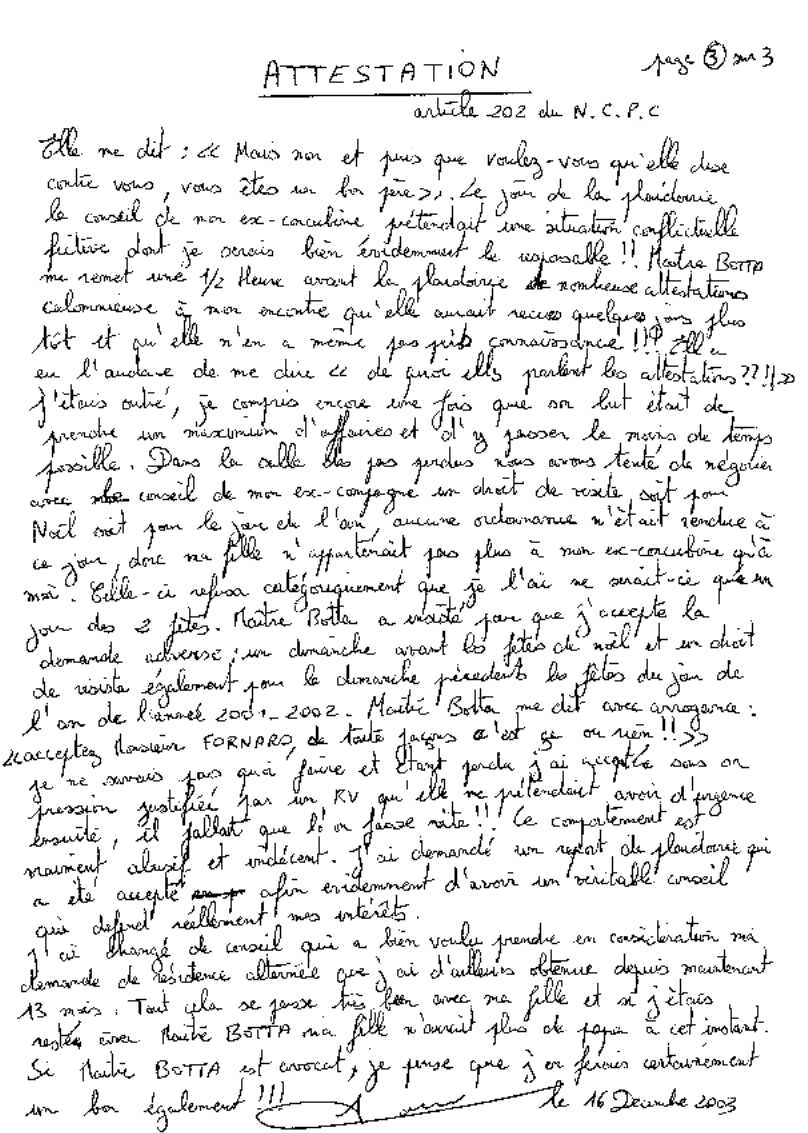 page 3 sur 3
ATTESTATION
article 202 du N.C.P.C
Elle me dit : << Mais non et puis que voulez-vous qu'elle dise
contre vous, vous êtes un bon père >>. Le jour de la plaidoirie
le conseil de mon ex-concubine prétendait une situation conflictuelle
fictive dont je serais bien évidemment le responsable !! Maître BOTTA
me remet une 1/2 Heure avant la plaidoirie de nombreuse attestations
calomnieuse à mon encontre qu'elle aurait recues quelques jours plus
tôt et qu'elle n'en a même pas pris connaissance !!! Elle a
eu l'audace de me dire << de quoi elles parlent les attestations ??!! >>
J'étais outré, je compris encore une fois que son but était de
prendre un maximum d'affaires et d'y passer le moins de temps
possible. Dans la salle des pas perdus nous avons tenté de négocier
avec conseil de mon ex-compagne un droit de visite soit pour
Noël soit pour le jour de l'an, aucune ordonnance n'était rendue à
ce jour, donc ma fille n'appartenait pas plus à mon ex-concubine qu'à
moi. Celle-ci refusa catégoriquement que je l'ai ne serait-ce qu'un
jour des 2 fêtes. Maître Botta a insisté pour que j'accepte la
demande adverse : un dimanche avant les fêtes de noël et un droit
de visite également pour le dimanche précédents les fêtes du jour de
l'an de l'année 2001-2002. Maître Botta me dit avec arrogance :
<< acceptez Monsieur FORNARO, de toute façons c'est ça ou rien !! >>
je ne savais pas quoi faire et étant perdu j'ai accepté sous son
pression justifiée par un RV qu'elle me prétendait avoir d'urgence
ensuite, il fallait que l'on fasse vite !! Ce comportement est
vraiment abusif et indécent. J'ai demandé un report de plaidoirie qui
a été accepté afin evidemment d'avoir un véritable conseil
qui defend réellement mes intérêts.
J'ai changé de conseil qui a bien voulu prendre en considération ma
demande de résidence alternée que j'ai d'ailleurs obtenue depuis maintenant
13 mois. Tout cela se passe très bien avec ma fille et si j'étais
restés avec Maître BOTTA ma fille n'aurait plus de papa à cet instant.
Si Maître BOTTA est avocat, je pense que j'en ferais certainement
un bon également !!!
le 16 Décembre 2003